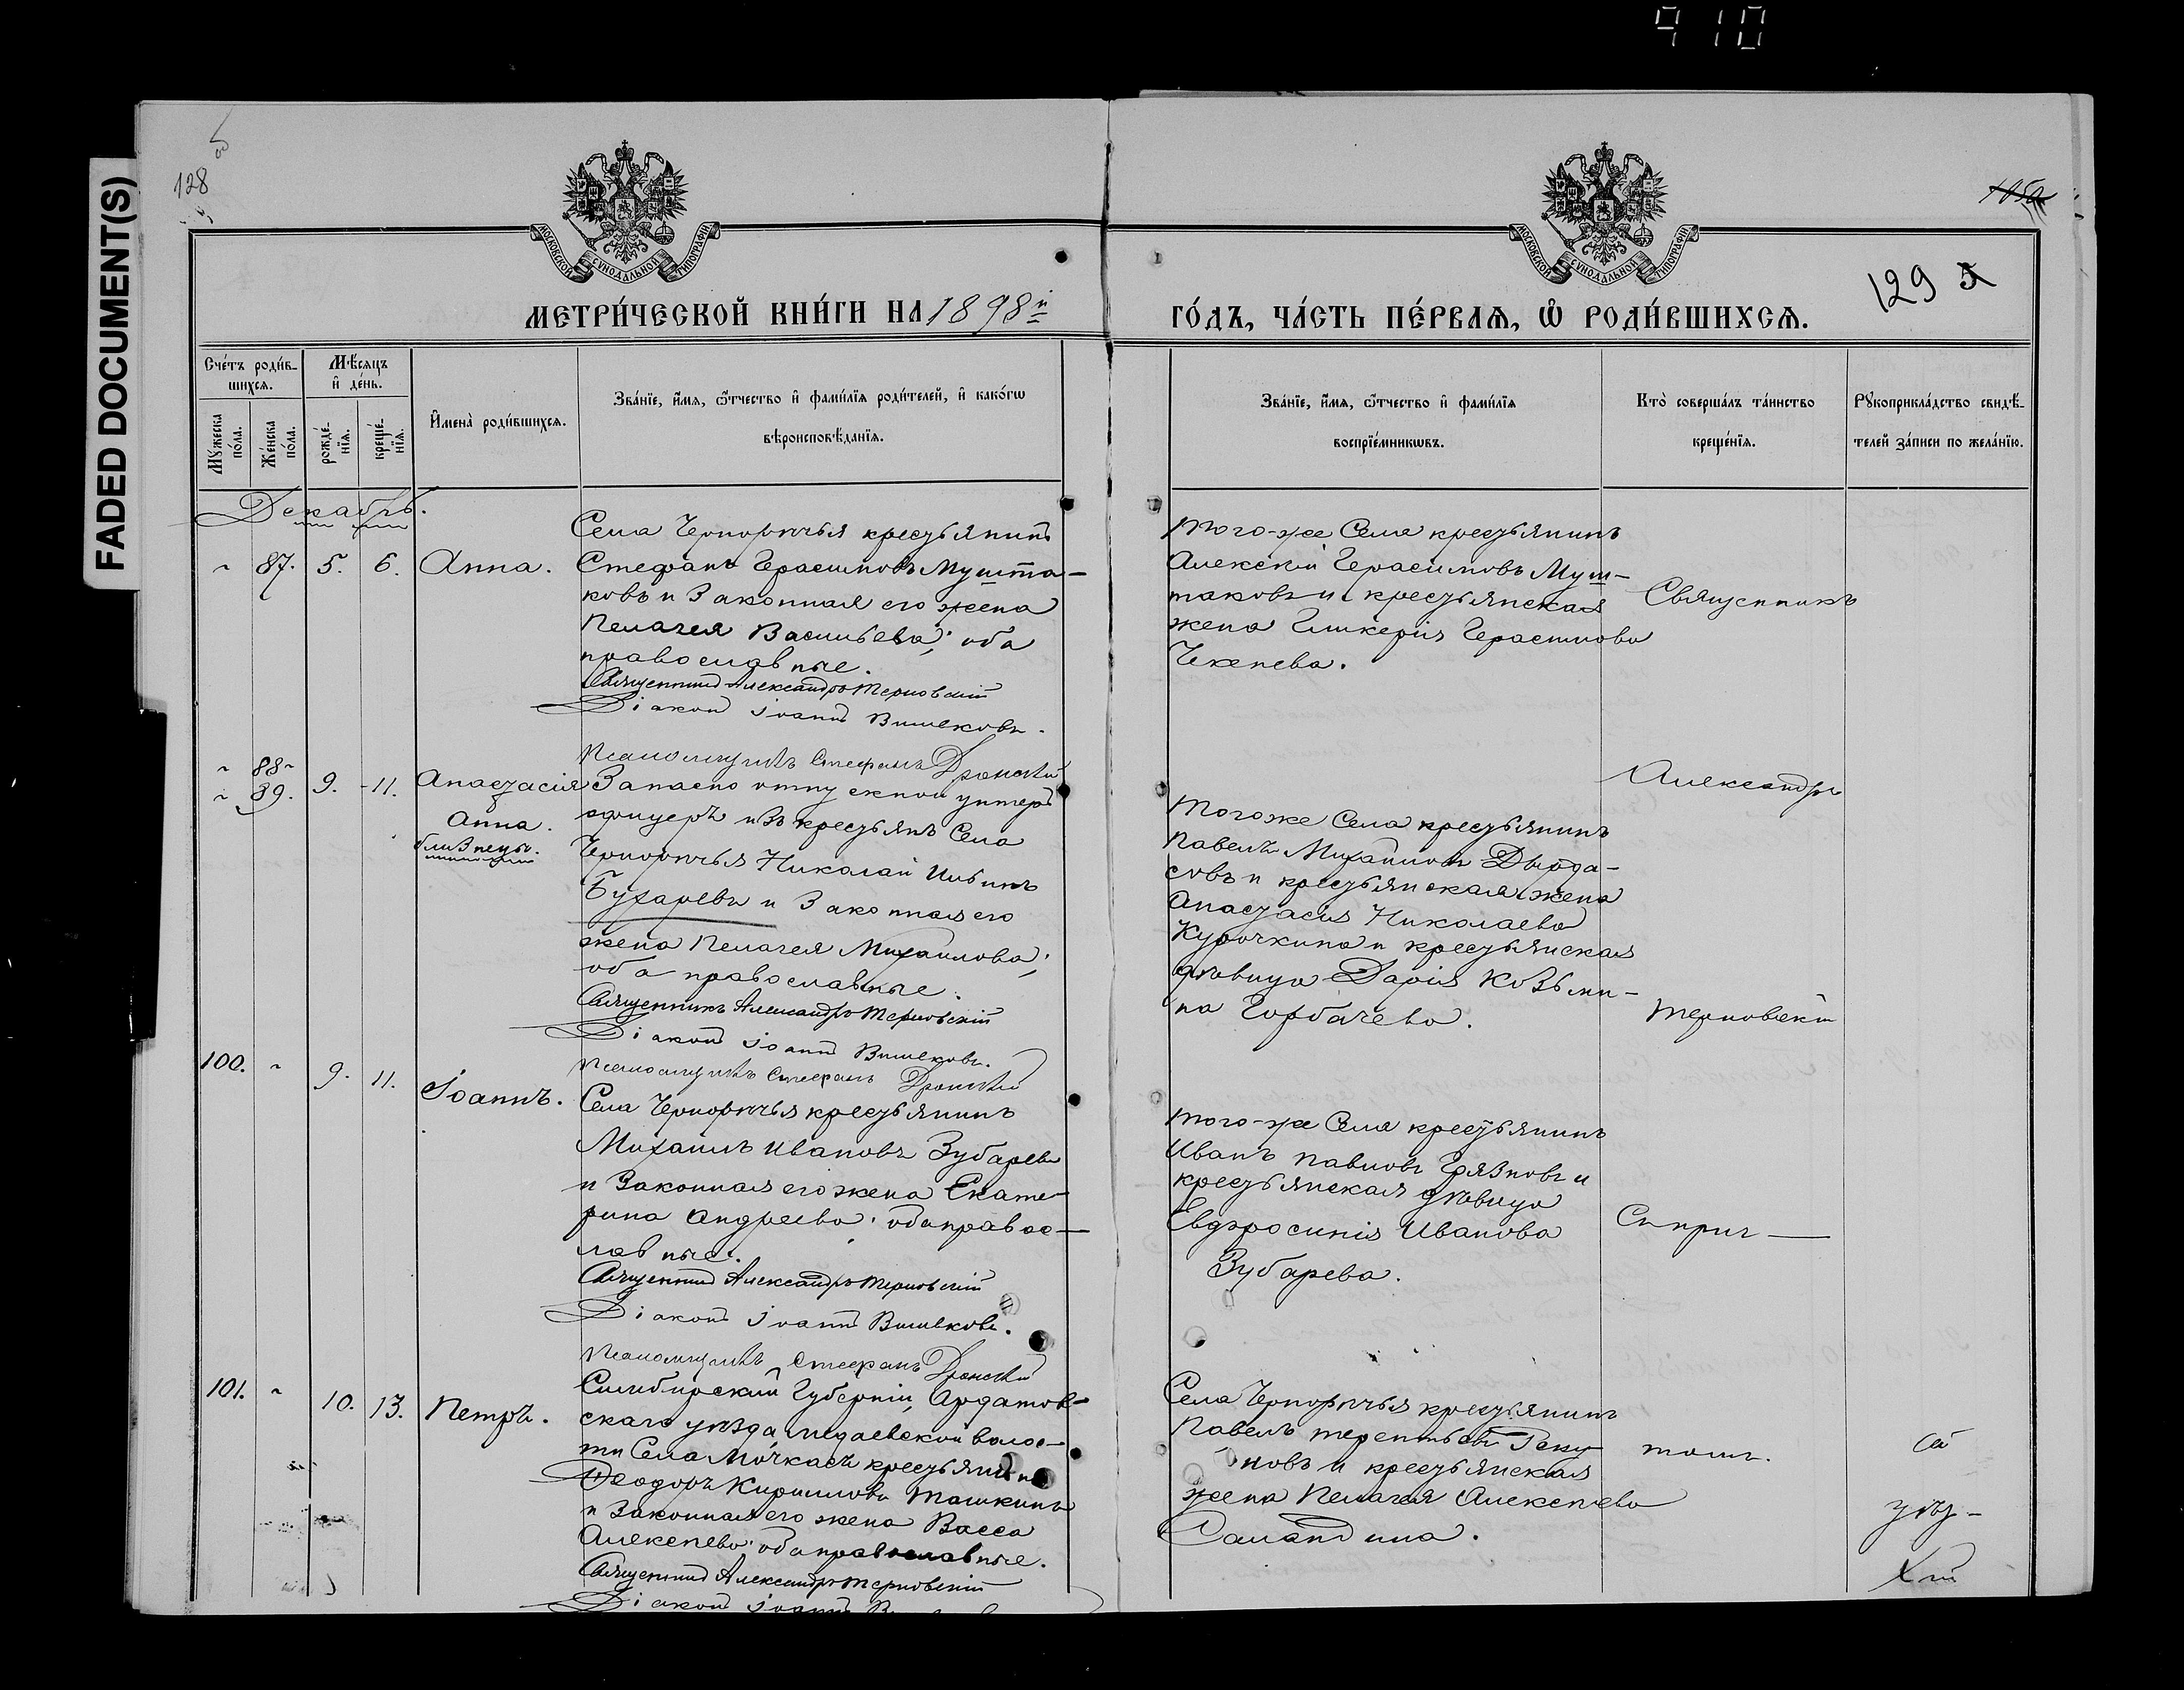 910
FADED DOCUMENT(S)
128
об
МОСКОВСКОЙ СѴНОДАЛЬНОЙ ТИПОГРАФІИ
МОСКОВСКОЙ СѴНОДАЛЬНОЙ ТИПОГРАФІИ
129
МЕТРИ́ЧЕСКОЙ КНИ́ГИ НА 1898й
ГО́ДЪ, ЧА́СТЬ ПЕ́РВАѦ, Ѽ РОДИ́ВШИХСѦ.
Сче́тъ роди́в-
шихся.
Мѣ́сяцъ
и҆ де́нь.
Мꙋжеска
по́ла.
Же́нска
по́ла.
рожде́-
нїѧ.
креще́-
нїѧ.
И҆мена̀ роди́вшихсѧ.
Зва́нїе, и҆́мѧ, ѻ҆́тчество и҆ фами́лїѧ роди́телей, и҆ како́гѡ
вѣроисповѣ́данїѧ.
Зва́нїе, и҆́мѧ, ѻ҆́тчество и҆ фами́лїѧ
воспрїе́мникѡвъ.
Кто̀ соверша́лъ та́инство
креще́нїѧ.
Рꙋкоприкла́дство свидѣ́-
телей за́писи по жела́нїю.
Декабрь.
87. 5. 6. Анна.
Села Чернорѣчья крестьянинъ
Стефанъ Герасимовъ Мушта-
ковъ и законная его жена
Пелагея Васильева; оба
православные.
Священникъ Александръ Терновскій
Діаконъ Іоаннъ Вишековъ.
Псаломщикъ Стефанъ Дронскій
того-же Села крестьянинъ
Алексѣй Герасимовъ Муш-
таковъ и крестьянская
жена Гликерія Герасимова
Чекнева.
Священникъ
88
89. 9. 11. Анастасія
Анна.
близнецы.
Запасно отпускной унтеръ
офицеръ изъ крестьянъ Села
Чернорѣчья Николай Ильинъ
Бухаревъ и законная его
жена Пелагея Михаилова;
оба православные.
Священникъ Александръ Терновскій
Діаконъ Іоаннъ Вишековъ.
Псаломщикъ Стефанъ Дронскій
Тогоже Села крестьянинъ
Павелъ Михаиловъ Дырда-
совъ и крестьянская жена
Анастасия Николаева
Курочкина и крестьянская
дѣвица Дарія Козьми-
на Горбачева.
Александръ
Терновскій
100. 9. 11. Іоаннъ.
Села Чернорѣчья крестьянинъ
Михаилъ Ивановъ Зубаревъ
и Законная его жена Екате-
рина Андреева; оба правос-
лавные.
Священникъ Александръ Терновскій
Діаконъ Іоаннъ Вишековъ.
Псаломщикъ Стефанъ Дронскій
того-же Села крестьянинъ
Иванъ Павловъ Грязновъ и
крестьянская дѣвица
Евфросинія Иванова
Зубарева.
Съ прич-
101. 10. 13. Петръ.
Симбирской Губерніи, Ардатов-
скаго уѣзда, Медаевской волос-
ти Села Мочкасъ крестьянинъ
Ѳеодоръ Кирилловъ Ташкинъ
и Законная его жена Васса
Алексеева; оба православные.
Священникъ Александръ Терновскій
Діаконъ Іоаннъ
Села Чернорѣчья крестьянинъ
Павелъ Терентьевъ
новъ и крестьянская
жена Пелагея Алексѣева
томъ.